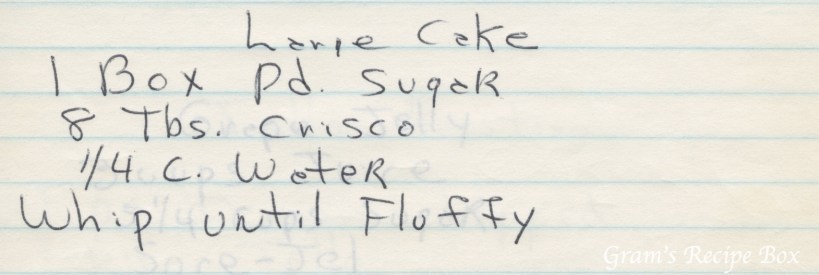 Large Cake
1 Box Pd. Sugar
8 Tbs. Crisco
1/4 C. Water
Whip until Fluffy
Gram's Recipe Box